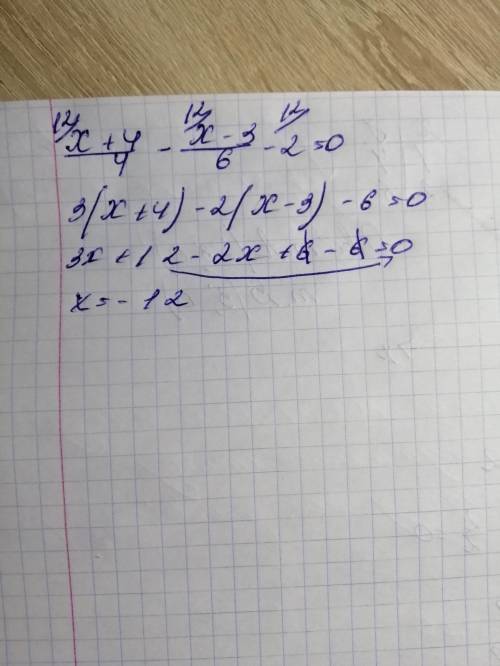 12/ x + 4 / 4 - 12/ x - 3 / 6 - 12/ 2 = 0
3(x+4) - 2(x-3) - 6 = 0
3x + 12 - 2x + 6 - 6 = 0
x = - 12